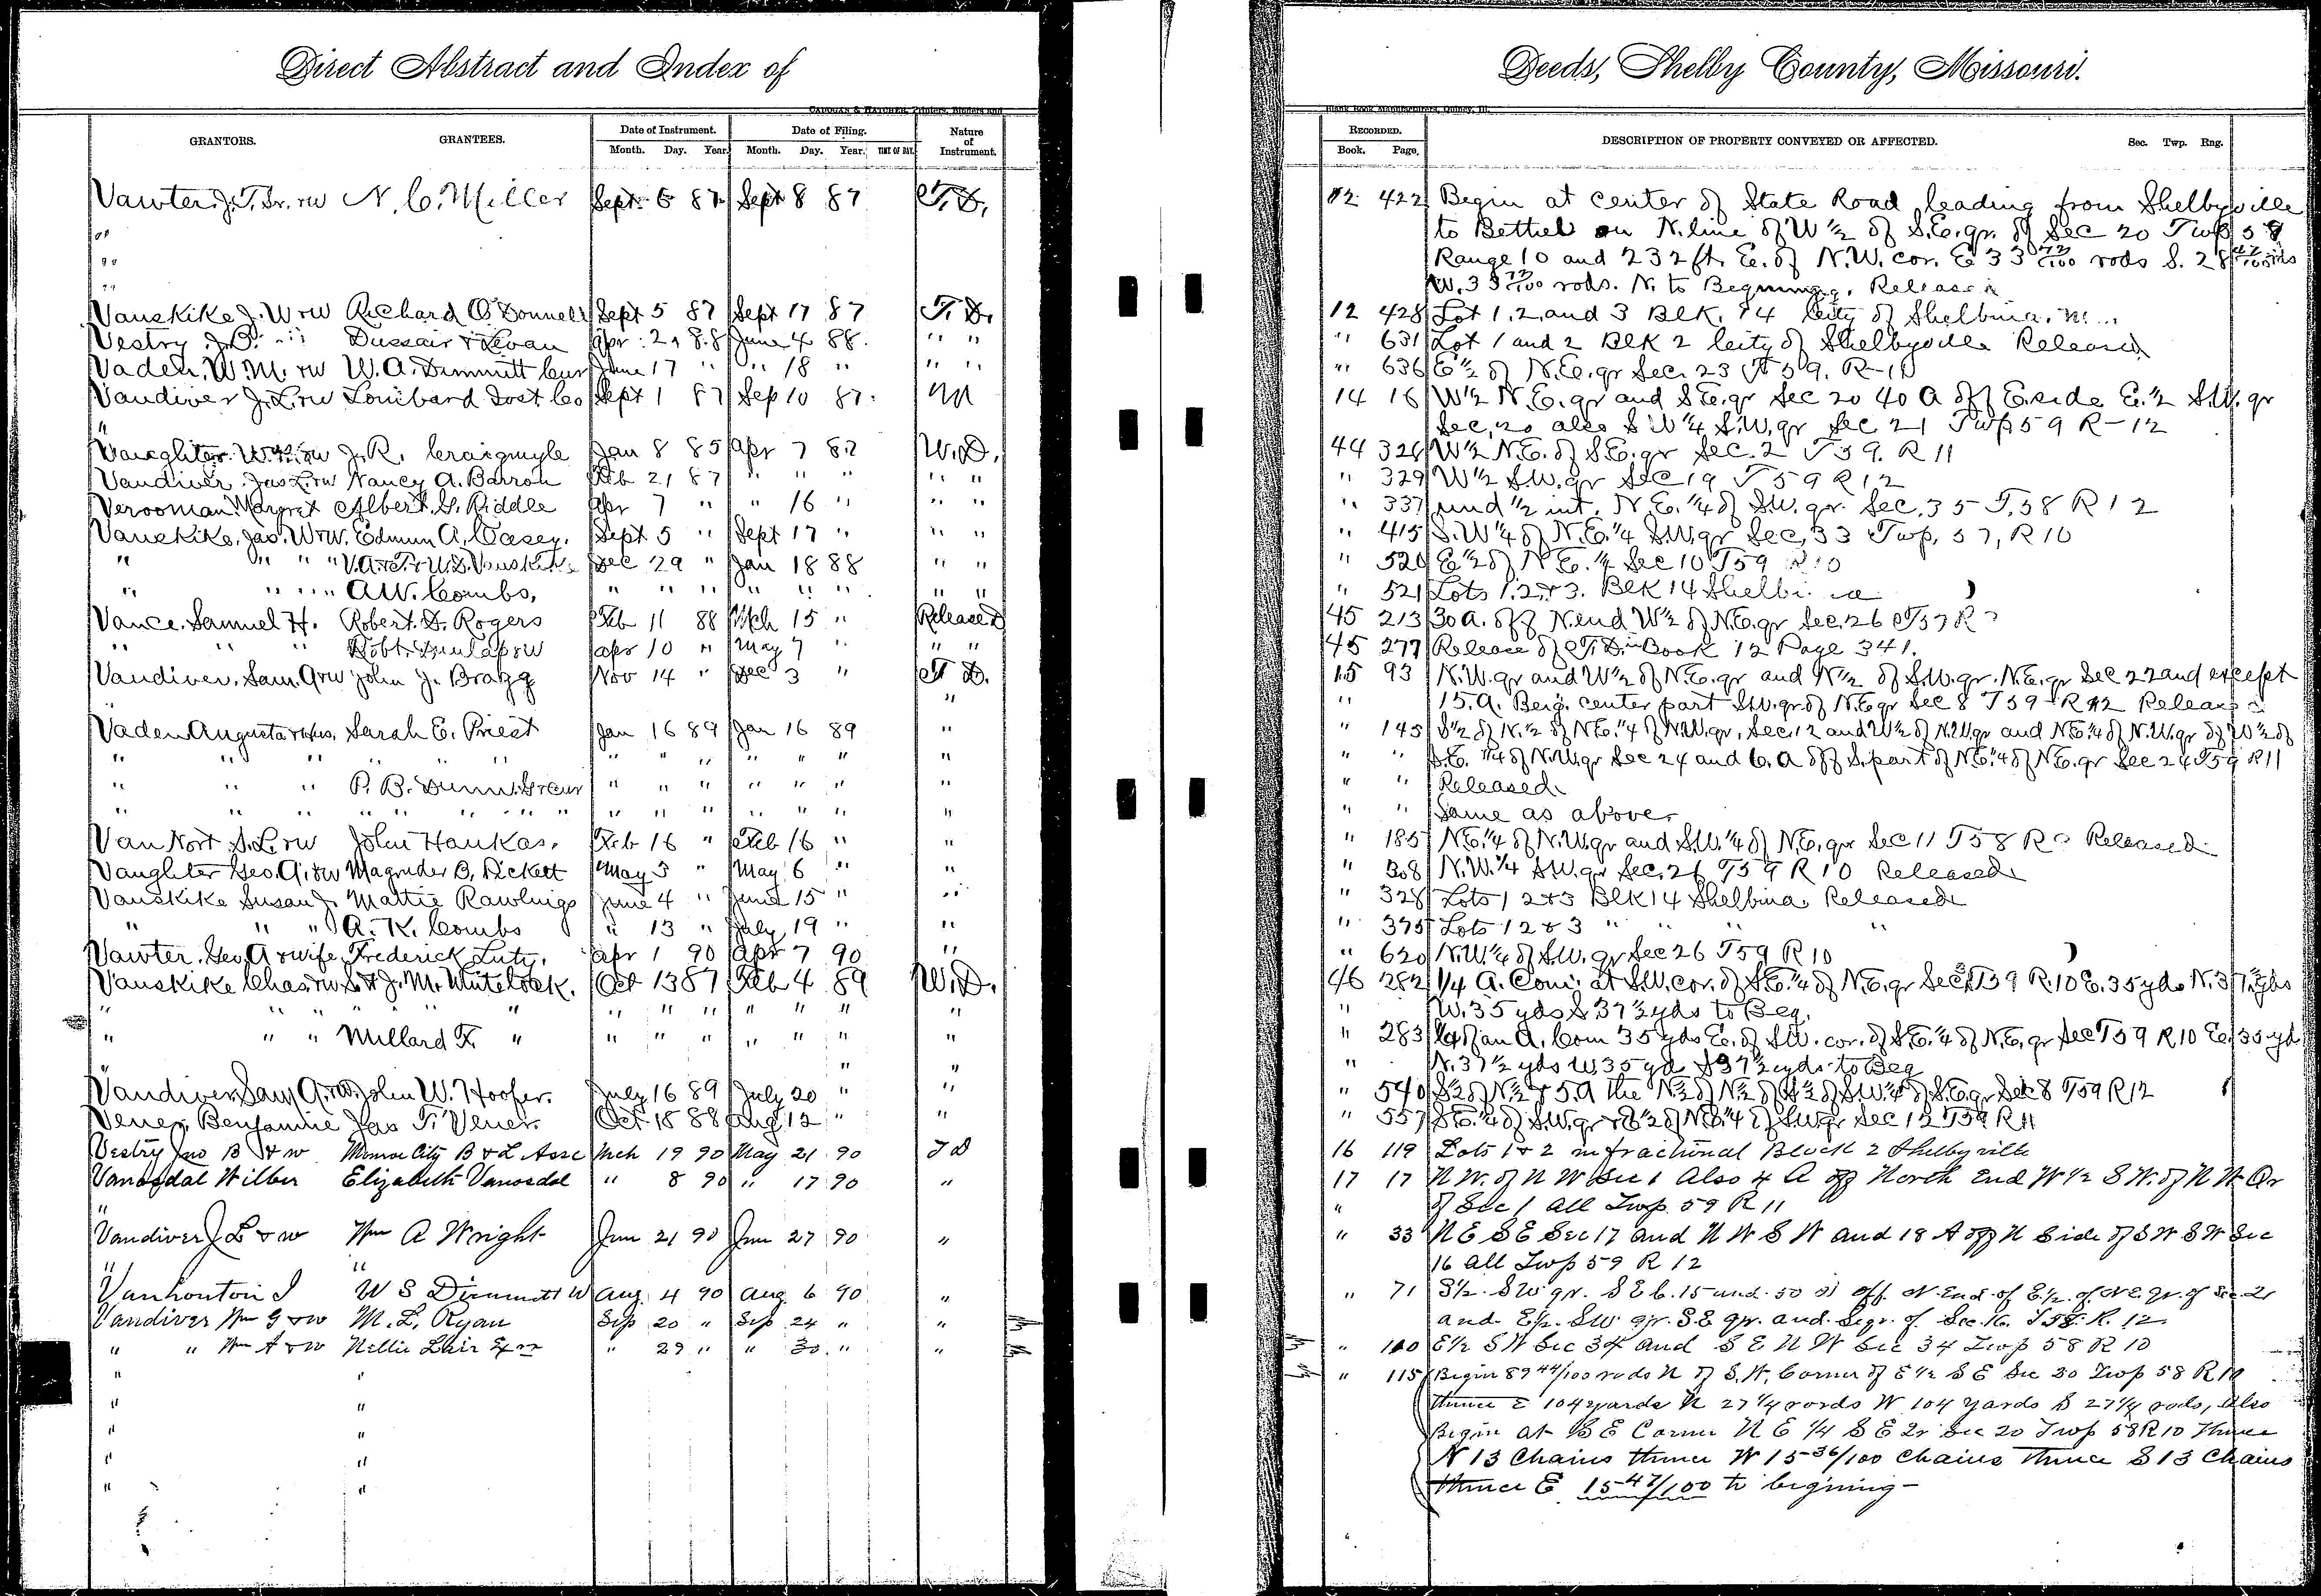 Direct Abstract and Index of
CADOGAN & HATCHER, Printers, Binders and
GRANTORS. GRANTEES. Date of Instrument. Date of Filing. Nature of Instrument.
Month. Day. Year. Month. Day. Year. TIME OF DAY.
Vawter J. T. Sr. rw N. C. Miller Sept. 6 87 Sept 8 87 T. D.
"
"
"
Vanskike J. W rw Richard O'Donnell Sept 5 87 Sept 17 87 T. D.
Vestry J. B. " " Dussair & Levan Apr. 21 88 June 4 88. " "
Vaden, W. M. rw W. A. Dimmitt Cur June 17 " " 18 " " "
Vandiver J. L. rw Lombard Invt Co Sept 1 87 Sep 10 87.
"
Vaughter W. H. rw J. R. Craigmyle Jan 8 85 Apr 7 87 W. D.
Vandiver Jas L. rw Nancy A. Barron Feb 21 87 " " " " "
Verooman Margret Albert G. Riddle Apr 7 " " 16 " " "
Vanskike, Jas. W rw. Edmun A. Casey. Sept 5 " Sept 17 " " "
" " " " V. A. T. & U. S. Vanskike Dec 29 " Jan 18 88 " "
" " " " A. W. Combs, " " " " " " " "
Vance, Samuel H. Robert D. Rogers Feb 11 88 Mch 15 " Released
" " " Robt. Dunlap rw Apr 10 " May 7 " " "
Vandiver, Sam. A rw John J. Bragg Nov 14 " Dec 3 " T. D.
"
Vaden Augusta & hus. Sarah E. Priest Jan 16 89 Jan 16 89 "
" " " " " " " " " " " " "
" " " P. B. Dunn Gr Cur " " " " " " "
" " " " " " " " " " " " " "
Van Nort S. L. rw John Hankas. Feb 16 " Feb 16 " "
Vaughter Geo. A. rw Magruder B. Pickett May 3 " May 6 " "
Vanskike Susan J. Mattie Rawlings June 4 " June 15 " "
" " " A. K. Combs " 13 " July 19 " "
Vawter, Geo. A & wife, Frederick Luty. Apr 1 90 Apr 7 90 "
Vanskike Chas rw S & J. M. Whitelock. Oct 13 87 Feb 4 89 W. D.
" " " " " " " " " " "
" " " Millard F. " " " " " " " "
" "
Vandiver Sam A. rw. John W. Hoofer. July 16 89 July 20 " "
Vener, Benjamine Jas F. Vener. Oct 18 88 Aug 12 " "
Vestry Jno B & w Monroe City B & L Assc Mch 19 90 May 21 90 T D
Vanosdal Wilber Elizabeth Vanosdol " 8 90 " 17 90 "
"
Vandiver J L & w Wm A Wright Jun 21 90 Jun 27 90 "
" "
Vanhouton I W S Dimmitt Aug. 4 90 Aug. 6 90 "
Vandiver Wm G & w M. L. Ryan Sep 20 " Sep 24 " "
" " Wm A & w Nellie Lair " 29 " " 30 " "
" "
" "
" "
" "
" "
Deeds, Shelby County, Missouri.
Blank Book Manufacturers, Quincy, Ill.
RECORDED. DESCRIPTION OF PROPERTY CONVEYED OR AFFECTED. Sec. Twp. Rng.
Book. Page.
12 422 Begin at center of State Road leading from Shelbyville
to Bethel on N. line of W ½ of S. E. qr. of Sec 20 Twp 58
Range 10 and 232 ft. E. of N. W. cor. E 33 73/100 rods S. 28 47/100 rods
W. 33 73/100 rods. N. to Begnning. Released
12 428 Lot 1, 2, and 3 Blk. 14 City of Shelbina. M...
" 631 Lot 1 and 2 Blk 2 City of Shelbyville Released
" 636 E ½ of N. E. qr Sec. 23 T 59. R-10
14 16 W ½ N. E. qr and S E. qr Sec 20 40 A off E. side E. ½ S. W. qr
Sec. 20 also S W ¼ S. W. qr Sec 21 Twp 59 R-12
44 328 W ½ N. E. of S. E. qr Sec. 2 T 59. R 11
" 329 W ½ S. W. qr Sec 19 T 59 R 12
" 337 und ½ int. N. E. ¼ of S. W. qr. Sec. 35 T. 58 R 12
" 415 S. W ¼ of N. E. ¼ S. W. qr Sec, 33 Twp. 57, R 10
" 520 E ½ of N E. ¼ Sec 10 T 59 R 10
" 521 Lots 1, 2, & 3. Blk 14 Shelbina
45 213 30 A. off N. end W ½ of N. E. qr Sec. 26 T 57 R
45 277 Release of T. D. in Book 12 Page 341.
15 93 N. W. qr and W ½ of N. E. qr and N ½ of S. W. qr. N. E. qr Sec 22 and except
" 15. A. Beig. center part S. W. qr. of N. E. qr Sec 8 T 59 R 12 Released
" 145 S ½ of N. ½ of N E. ¼ of N. W. qr, Sec. 12 and W ½ of N. W. qr and N E. ¼ of N. W. qr of W ½ of
" " S. E. ¼ of N. W. qr Sec 24 and 6. A off S. part of N E. ¼ of N E. qr Sec 24 T 59 R 11
" " Released
" " Same as above
" 185 N. E. ¼ of N. W. qr and S. W. ¼ of N. E. qr Sec 11 T 58 R 9 Released
" 308 N. W. ¼ S. W. qr Sec. 26 T 59 R 10 Released
" 328 Lots 1 2 & 3 Blk 14 Shelbina Released
" 375 Lots 1 2 & 3 " " " "
" 620 N. W. ¼ of S. W. qr Sec 26 T 59 R 10
46 282 ¼ A. Com. at S. W. cor. of S. E. ¼ of N. E. qr Sec T 59 R. 10 E. 35 yds N. 37 ½ yds
" W. 35 yds S 37 ½ yds to Beg.
" 283 ¼ of an A. Com 35 yds E. of S. W. cor. of S. E. ¼ of N. E. qr Sec T 59 R 10 E. 35 yd
" N. 37 ½ yds W 35 yds S 37 ½ yds to Beg
" 540 S ½ of N ½ & 5. A the N ½ of N ½ of S ½ of S. W. ¼ of S. E. qr Sec 8 T 59 R 12
" 557 S E. ¼ of S. W. qr & E ½ of N E. ¼ of S. W. qr Sec 12 T 59 R 11
16 119 Lots 1 & 2 in fractional Block 2 Shelbyville
17 17 N W. of N W Sec 1 Also 4 A off North End W ½ S W. of N W Qr
" of Sec 1 all Twp. 59 R 11
" 33 N E S E Sec 17 and N W S W and 18 A off N Side of S W S W Sec
16 all Twp 59 R 12
" 71 S ½ S W qr. S E 6. 15 and 50 a off N. End of E ½ of N E. qr. of Sec 21
and E ½ S W. qr. S E qr. and. Sec. 16. T 58. R. 12
" 110 E ½ S W Sec 34 and S E N W Sec 34 Twp 58 R 10
" 115 Begin 89 44/100 rods N of S. W. Corner of E ½ S E Sec 30 Twp 58 R 10
thence E 104 yards N 27 ¼ rods W 104 yards S 27 ¼ rods, also
Begin at S E Corner N E ¼ S E Qr Sec 20 Twp 58 R 10 thence
N 13 Chains thence W 15 36/100 chains thence S 13 Chains
thence E 15 47/100 to begining -